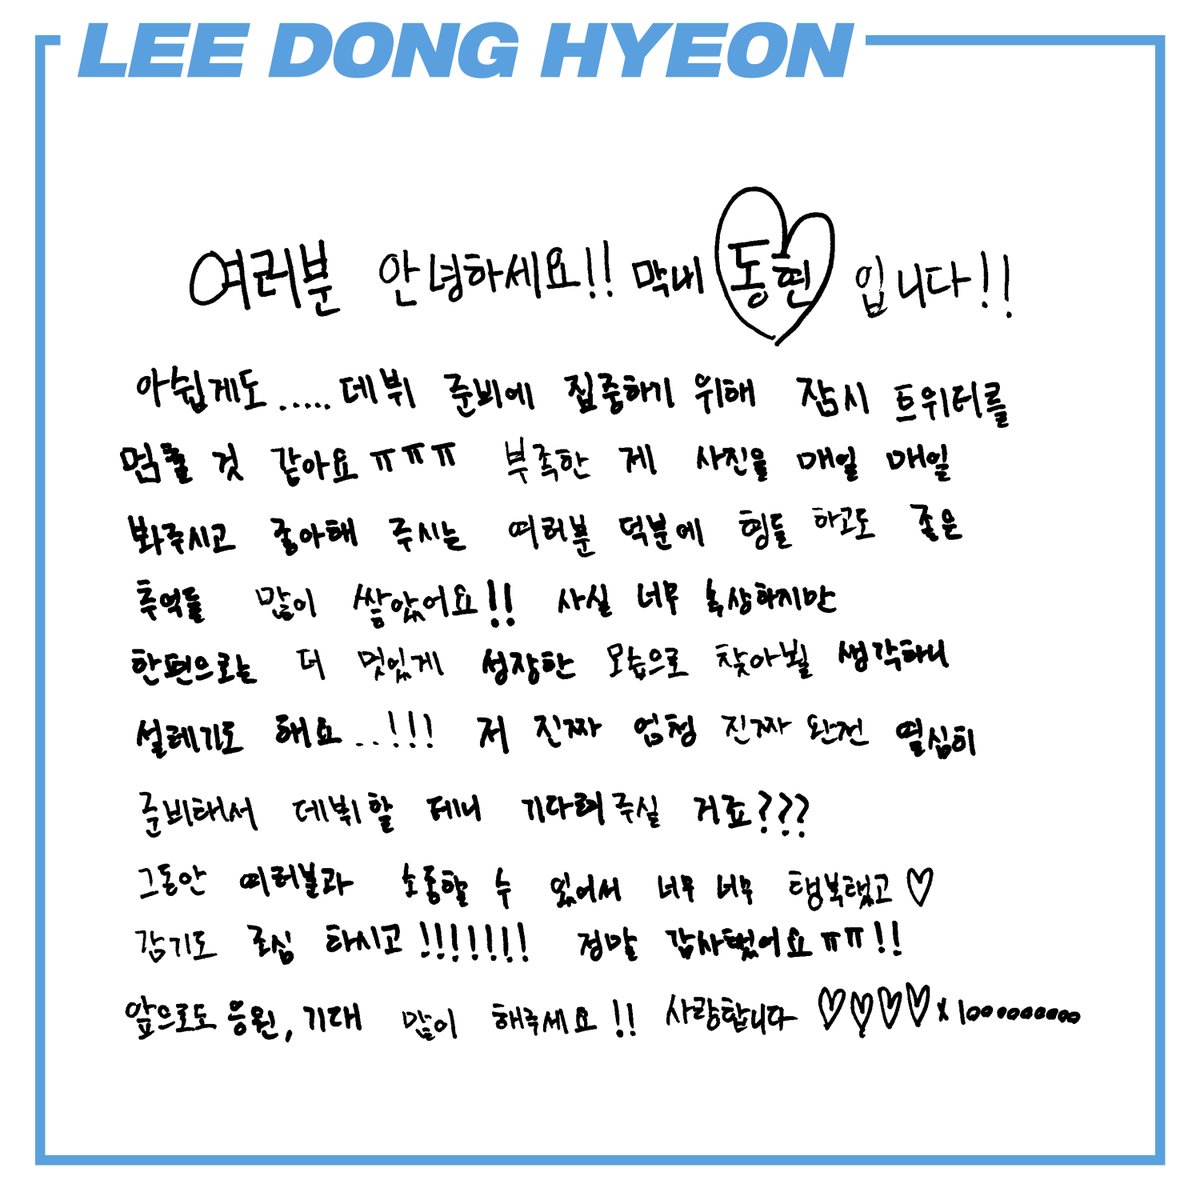 LEE DONG HYEON
여러분 안녕하세요!! 막내 동현 입니다!!
아쉽게도..... 데뷔 준비에 집중하기 위해 잠시 트위터를
멈출 것 같아요 ㅠㅠㅠ 부족한 제 사진을 매일 매일
봐주시고 좋아해 주시는 여러분 덕분에 힘들 하고도 좋은
추억들 많이 쌓았어요!! 사실 너무 속상하지만
한편으로는 더 멋있게 성장한 모습으로 찾아뵐 생각하니
설레기도 해요...!!! 저 진짜 엄청 진짜 완전 열심히
준비해서 데뷔할 테니 기다려주실 거죠???
그동안 여러분과 소통할 수 있어서 너무 너무 행복했고 ♡
감기도 조심 하시고!!!!!!! 정말 감사했어요ㅠㅠ!!
앞으로도 응원, 기대 많이 해주세요!! 사랑합니다 ♡♡♡♡x10000000000